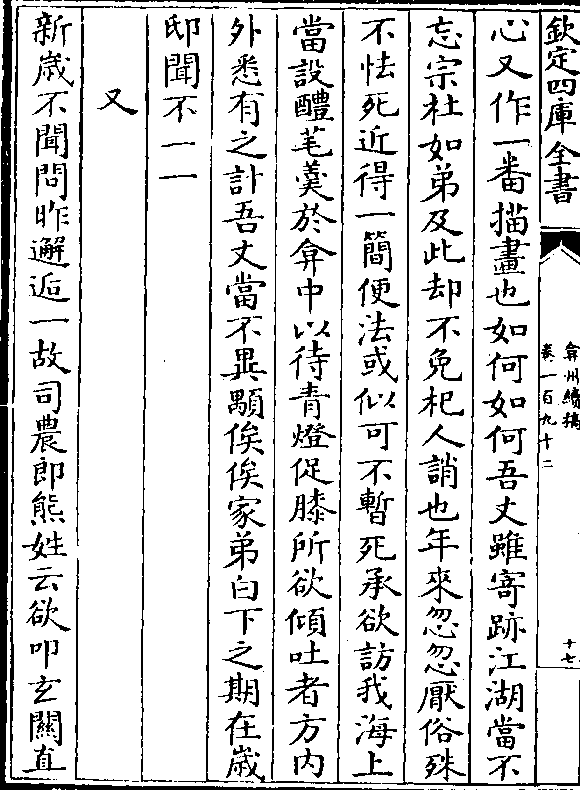 欽定四庫全書
弇州續稿
卷一百九十二
十七
心又作一番描畫也如何如何吾丈雖寄跡江湖當不
忘宗社如弟及此却不免杞人誚也年來忽忽厭俗殊
不怯死近得一簡便法或似可不暫死承欲訪我海上
當設醴芼羹於弇中以待青燈促膝所欲傾吐者方内
外悉有之計吾丈當不異顒俟俟家弟白下之期在歲
邸聞不一一
又
新歲不聞問昨邂逅一故司農郎熊姓云欲叩玄關直